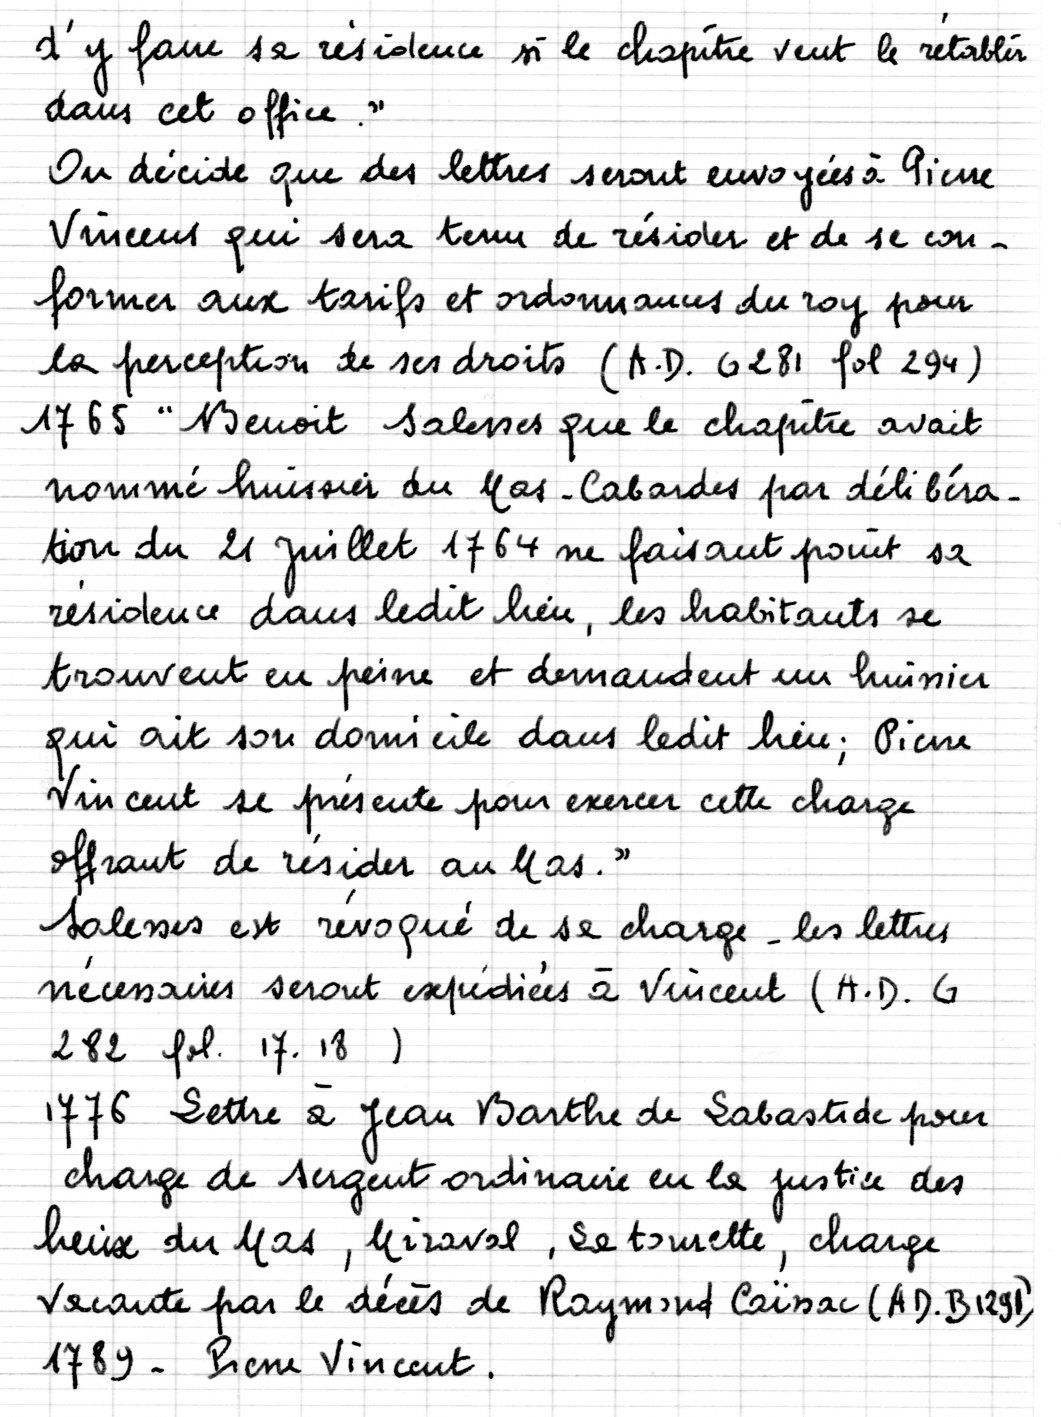 d'y faire sa résidence si le chapître veut le rétablir
dans cet office."
On décide que des lettres seront envoyées à Pierre
Vincens qui sera tenu de résider et de se con-
former aux tarifs et ordonnances du roy pour
la perception de ses droits (A.D. G 281 fol 294)
1765 "Benoit Salesses que le chapître avait
nommé huissier du Mas-Cabardes par délibéra-
tion du 21 juillet 1764 ne faisant point sa
résidence dans ledit lieu, les habitants se
trouvent en peine et demandent un huissier
qui ait son domicile dans ledit lieu; Pierre
Vincent se présente pour exercer cette charge
offrant de résider au Mas."
Salesses est révoqué de sa charge - les lettres
nécessaires seront expédiées à Vincent (A.D. G
282 fol. 17. 18 )
1776 Lettre à Jean Barthe de Labastide pour
charge de sergent ordinaire en la justice des
lieux du Mas, Miraval, La tourette, charge
vacante par le décès de Raymond Caïssac (AD. B 1291)
1789 - Pierre Vincent.